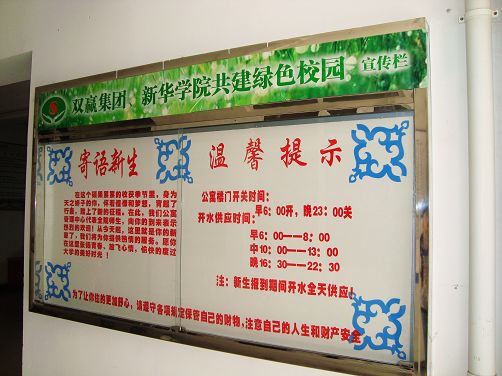 双赢集团、新华学院共建绿色校园 宣传栏
寄语新生
在这个硕果累累的收获季节里，身为
天之骄子的你，怀着理想和梦想，背起了
行囊，踏上了新的征程。在此，我们公寓
管理中心代表全院师生，向你的到来表示
热烈的欢迎！从今天起，这里就是你的新
家了，我们将为你提供热情的服务。愿你
在这里张扬青春、放飞心情，愉快的度过
大学的美好时光！
温馨提示
公寓楼门开关时间：
早6：00开，晚23：00关
开水供应时间：
早6：00——8：00
中10：00——13：00
晚16：30——22：30
注：新生报到期间开水全天供应！
为了让你住的更加舒心，请遵守各项规定保管自己的财物，注意自己的人生和财产安全